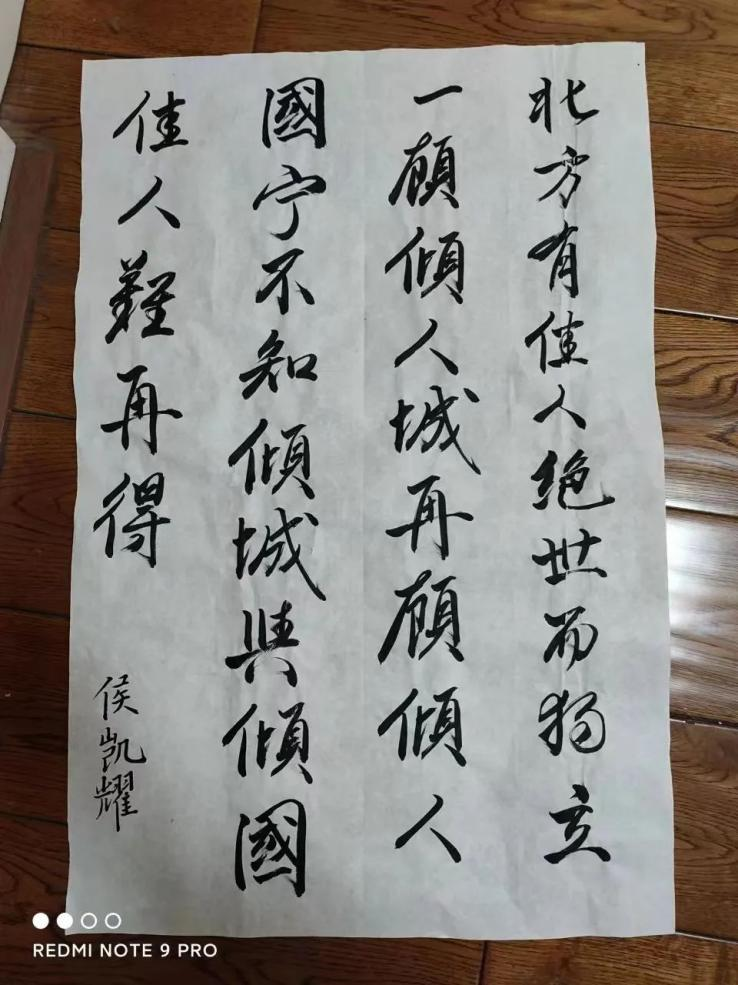 北方有佳人绝世而独立
一顾倾人城再顾倾人
國宁不知倾城與倾國
佳人難再得
侯凯耀
REDMI NOTE 9 PRO